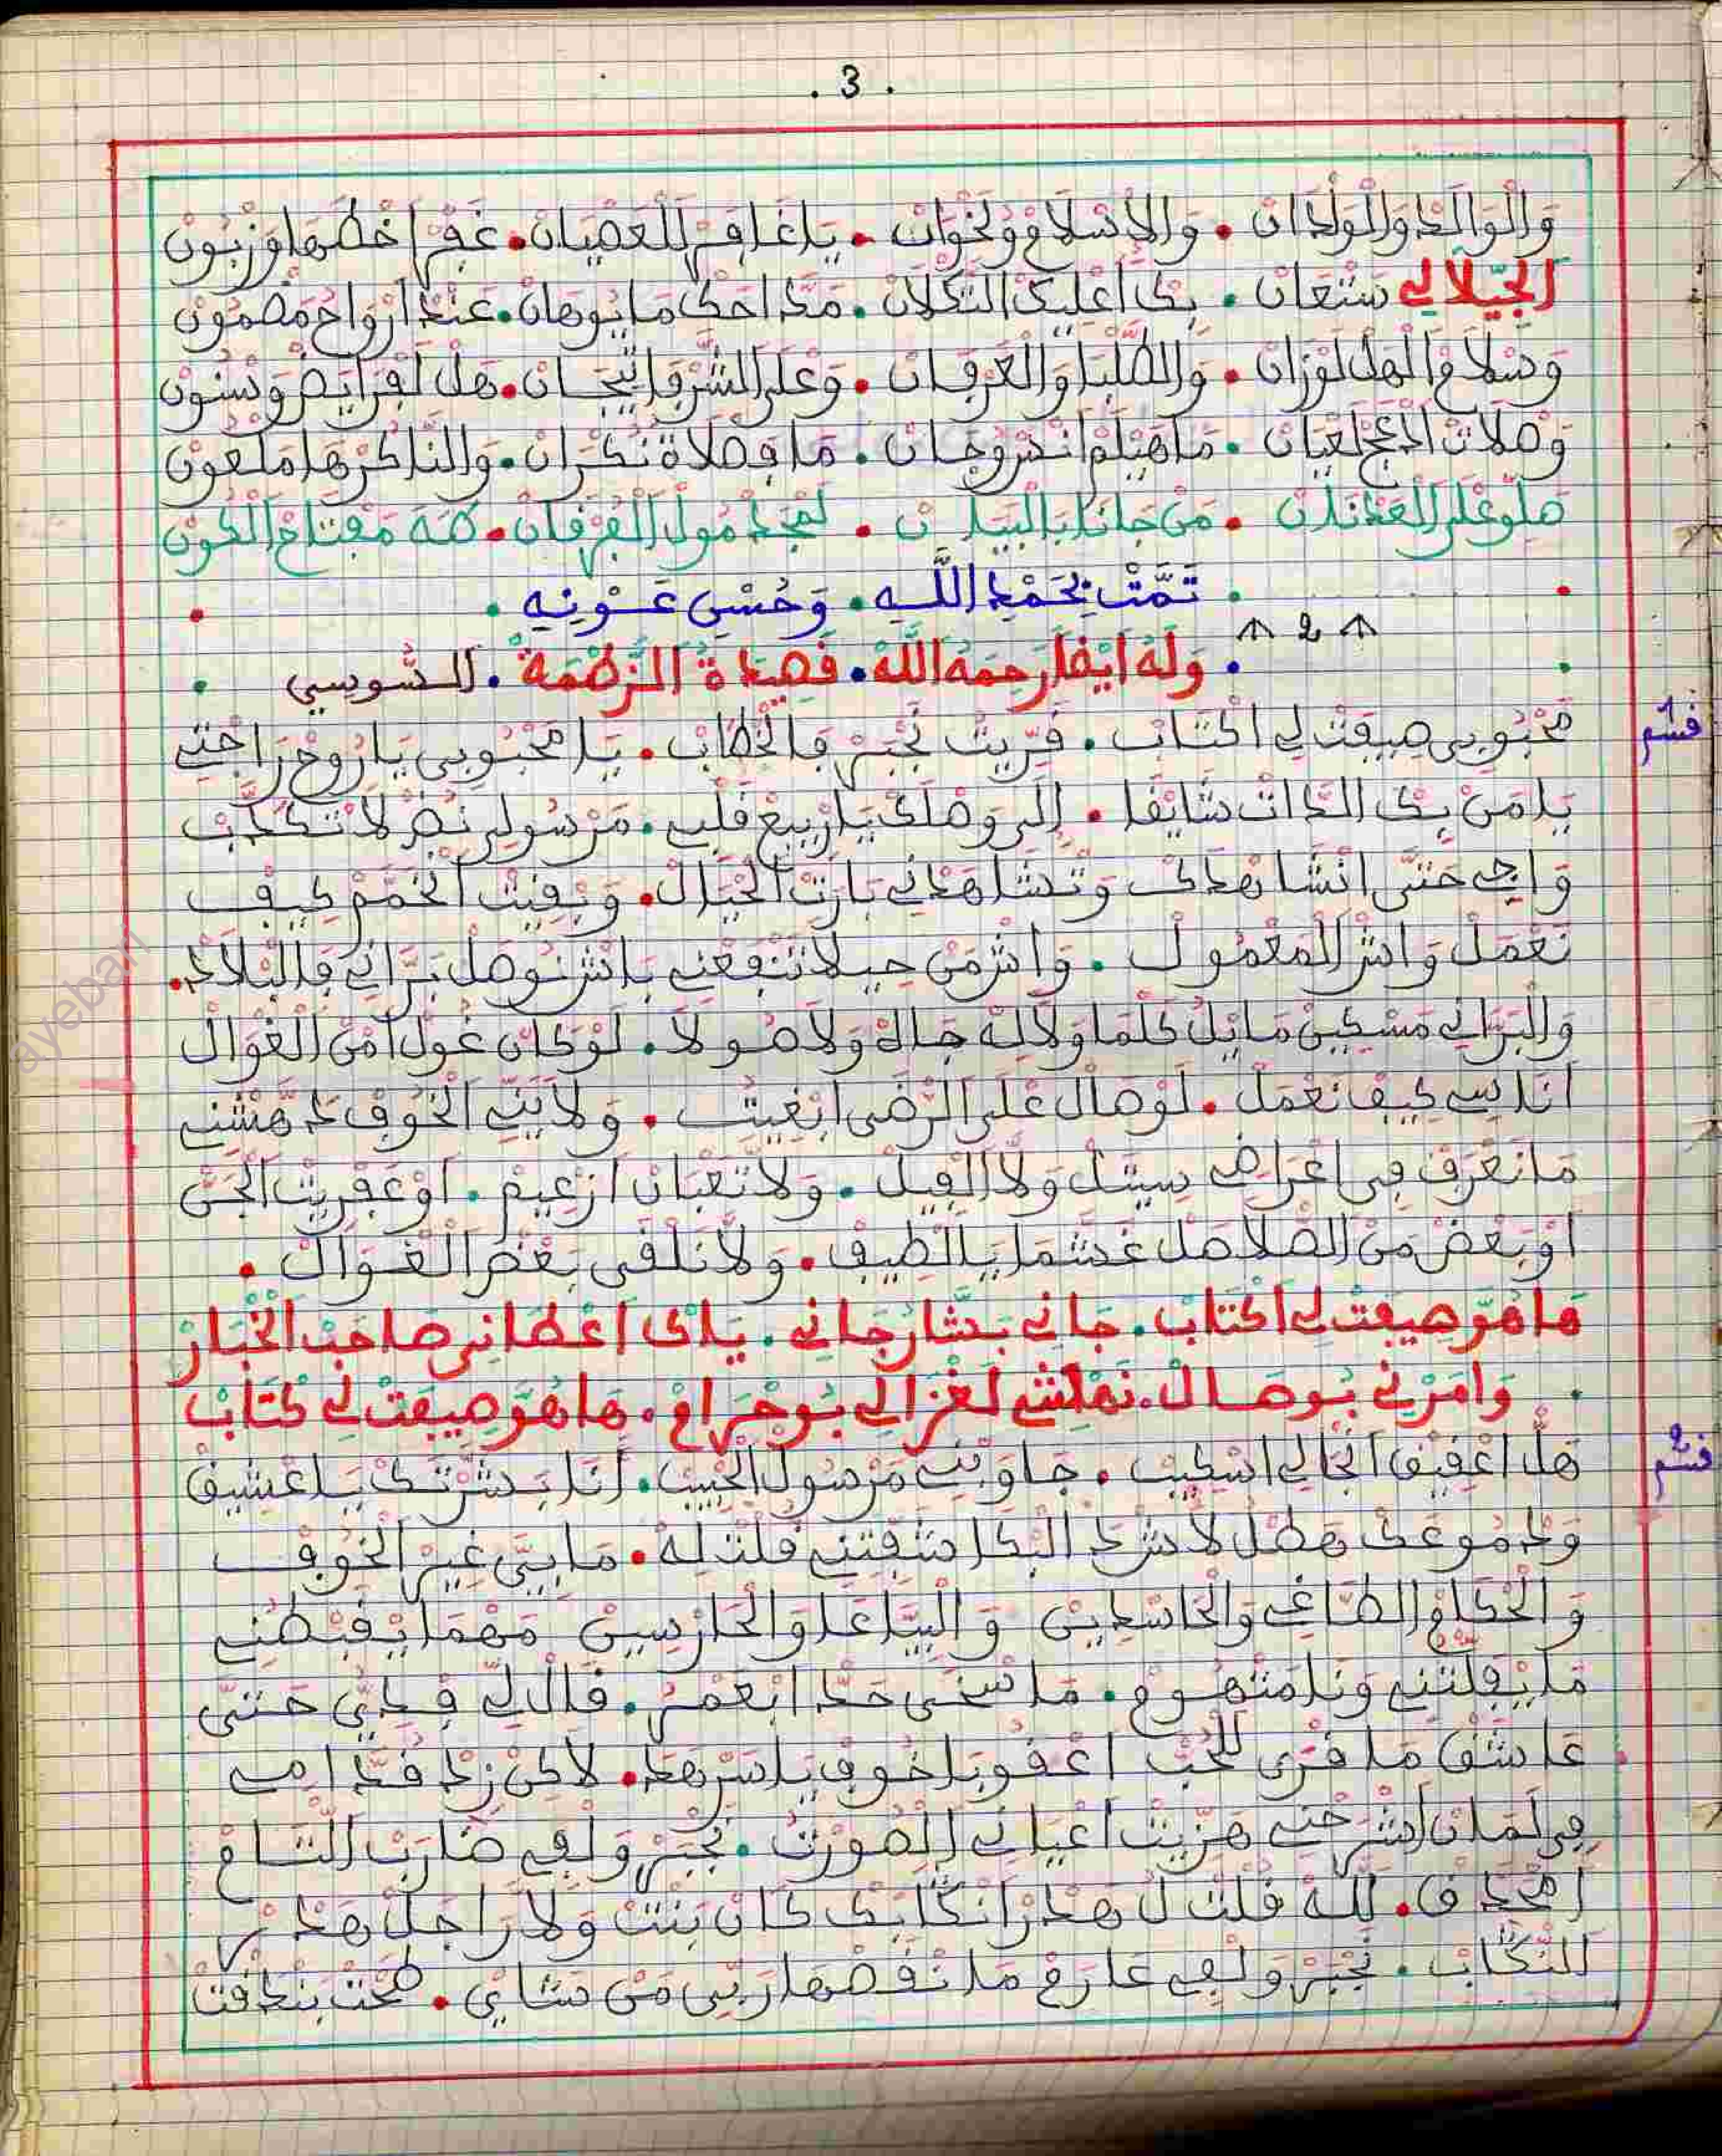 . 3 .
وَالْوَالْدْ وَالْوَلْدَانْ . وَالاَسْلاَفْ وُلخْوَانْ . يَا غَافِرْ لَلْعَصْيَانْ . غَفَّرْ
الجِّيلاَلِي سَتْعَانْ . بِكْ اعْلِيكْ التَّكْلاَنْ .
وَسْلاَمْ الْهَلْ لَوْزَانْ . وَالطَّلْبَا وَالْعَرْفَانْ . وَعْلَى الشُّرْفَا تِّيجَانْ . هَلْ لَفْرَايَضْ وَسْنُونْ
مَا فِصْلاَةْ نُكْرَانْ . وَالنَّاكَرْهَا مَلْعُونْ
صَلُّو عْلَى الْعَدْنَانْ . مَنْ جَانَا بَالْبَيَانْ . لَمْجَدْ مُولْ الْفُرْقَانْ . طَهَ مَفْتَاحْ الْكُونْ
تَمَّتْ بِحَمْدِ اللَّهِ . وَحُسْنِ عَوْنِهِ
2
وَلَهُ أَيْضًا رَحِمَهُ اللَّهُ . قَصِيدَةُ الزَّطْمَةْ . السُّوسِي
قسم 1
مَحْبُوبِي صِيفَتْ لِي اكْتَابْ . قَرِّيتْ نَجْبَرْ فَالْخْطَابْ . يَا مَحْبُوبِي يَا رُوحْ رَاحْتِي
يَا مَنْ بِكْ الدَّاتْ شَايْقَا . إِلَى وَصْلَكْ يَا رْبِيعْ قَلْبِي . مَرْسُولِي نْضَرْ لاَ تْكَدَّبْ
وَاجِي حَتَّى انْشَاهْدَكْ وَتْشَاهَدْنِي يَا رَتْ الْخْيَالْ . وَبْقِيتْ انْخَمَّمْ كِيفْ
نَعْمَلْ وَاشْ الْمَعْمُولْ . وَاشْ مَنْ حِيلاَ تَنْفَعْنِي بَاشْ نُوصَلْ بَرَّانِي فَالْبْلاَدْ .
وَالْبَرَّانِي مَسْكِينْ مَا يْلُ كَلْمَا وَلاَ لِهْ جَاهْ وَلاَ صُولاَ . لَوْ كَانْ غُولْ امْنْ الْغْوَالْ
انَايَا كِيفْ نَعْمَلْ . لَوْصَالْ عْلَى الرّْضَى ابْغِيتْ . وَلاَيَنِّي الْخُوفْ دَهَّشْنِي
مَا نَعْرَفْ فِي اغْرَاضِي سِيتَلْ وَلاَ الْفِيلْ . وَلاَ تَعْبَانْ ازْعِيمْ . اوْ عَفْرِيتْ الْجَنّْ
اوْ بَعْضْ مَنْ الصّْلاَصَلْ غَشْمَا يَا لْطِيفْ . وَلاَ نَلْقَى بَعْضْ الْغْوَالْ .
هَا هُوَّ صِيفَتْ لِي اكْتَابْ . جَانِي بَشَّارْ جَانِي . يَاكْ اعْطَانِي صَاحَبْ الْخْبَارْ
وَامَرْنِي بُوصَالْ . نَمْشِي لَغْزَالِي بُوحْرَامْ . هَا هُوَّ صِيفَتْ لِي كْتَابْ
قسم 2
هَلْ اعْقِيقْ انْجَالِي اسْكِيبْ . جَاوَبْنِي مَرْسُولْ الْحْبِيبْ . أَنَا بَشَّرْتَكْ يَا عْشِيقْ
وَدْمُوعَكْ هَطْلُ لاَشْ دَ الْبْكَا شَفِّتْنِي قُلْتْ لَهْ . مَا بِيَّ غِيرْ الْخُوفْ
وَالْحُكَّامْ الطَّاغِي وَالْحَاسْدِينْ وَالْبِيَّاعَا وَالْحَارْسِينْ مَهْمَا يْقَبْطُنِي
مَا يْفَلْتُنِي وَنَا مَتْهُومْ . مَا سْخَى حَدّْ ابْعَمْرُ . قَالْ لِي قَدِّي حَتَّى
عَاشْقْ مَا قْرَى لْلْحُبّْ اعْقُوبَا خُوفْ يَا سَرْهَدْ . لاَكِنْ زِدْ قُدَّامِي
هَزِّيتْ اعْيَانِي الصُّورْتُ . نَجْبَرْ وَلْفِي ضَارَبْ اللّْتَامْ
. لْلَّهْ قُلْتْ لُ هَدْ رَانْكَابَكْ كَانْ بَنْتْ وَلاَ رَاجَلْ هَدْ
النّْكَابْ . نَجْبَرْ وَلْفِي عَارَمْ مَا نْقَصْهَا رَبِّي مَنْ شَايْ .